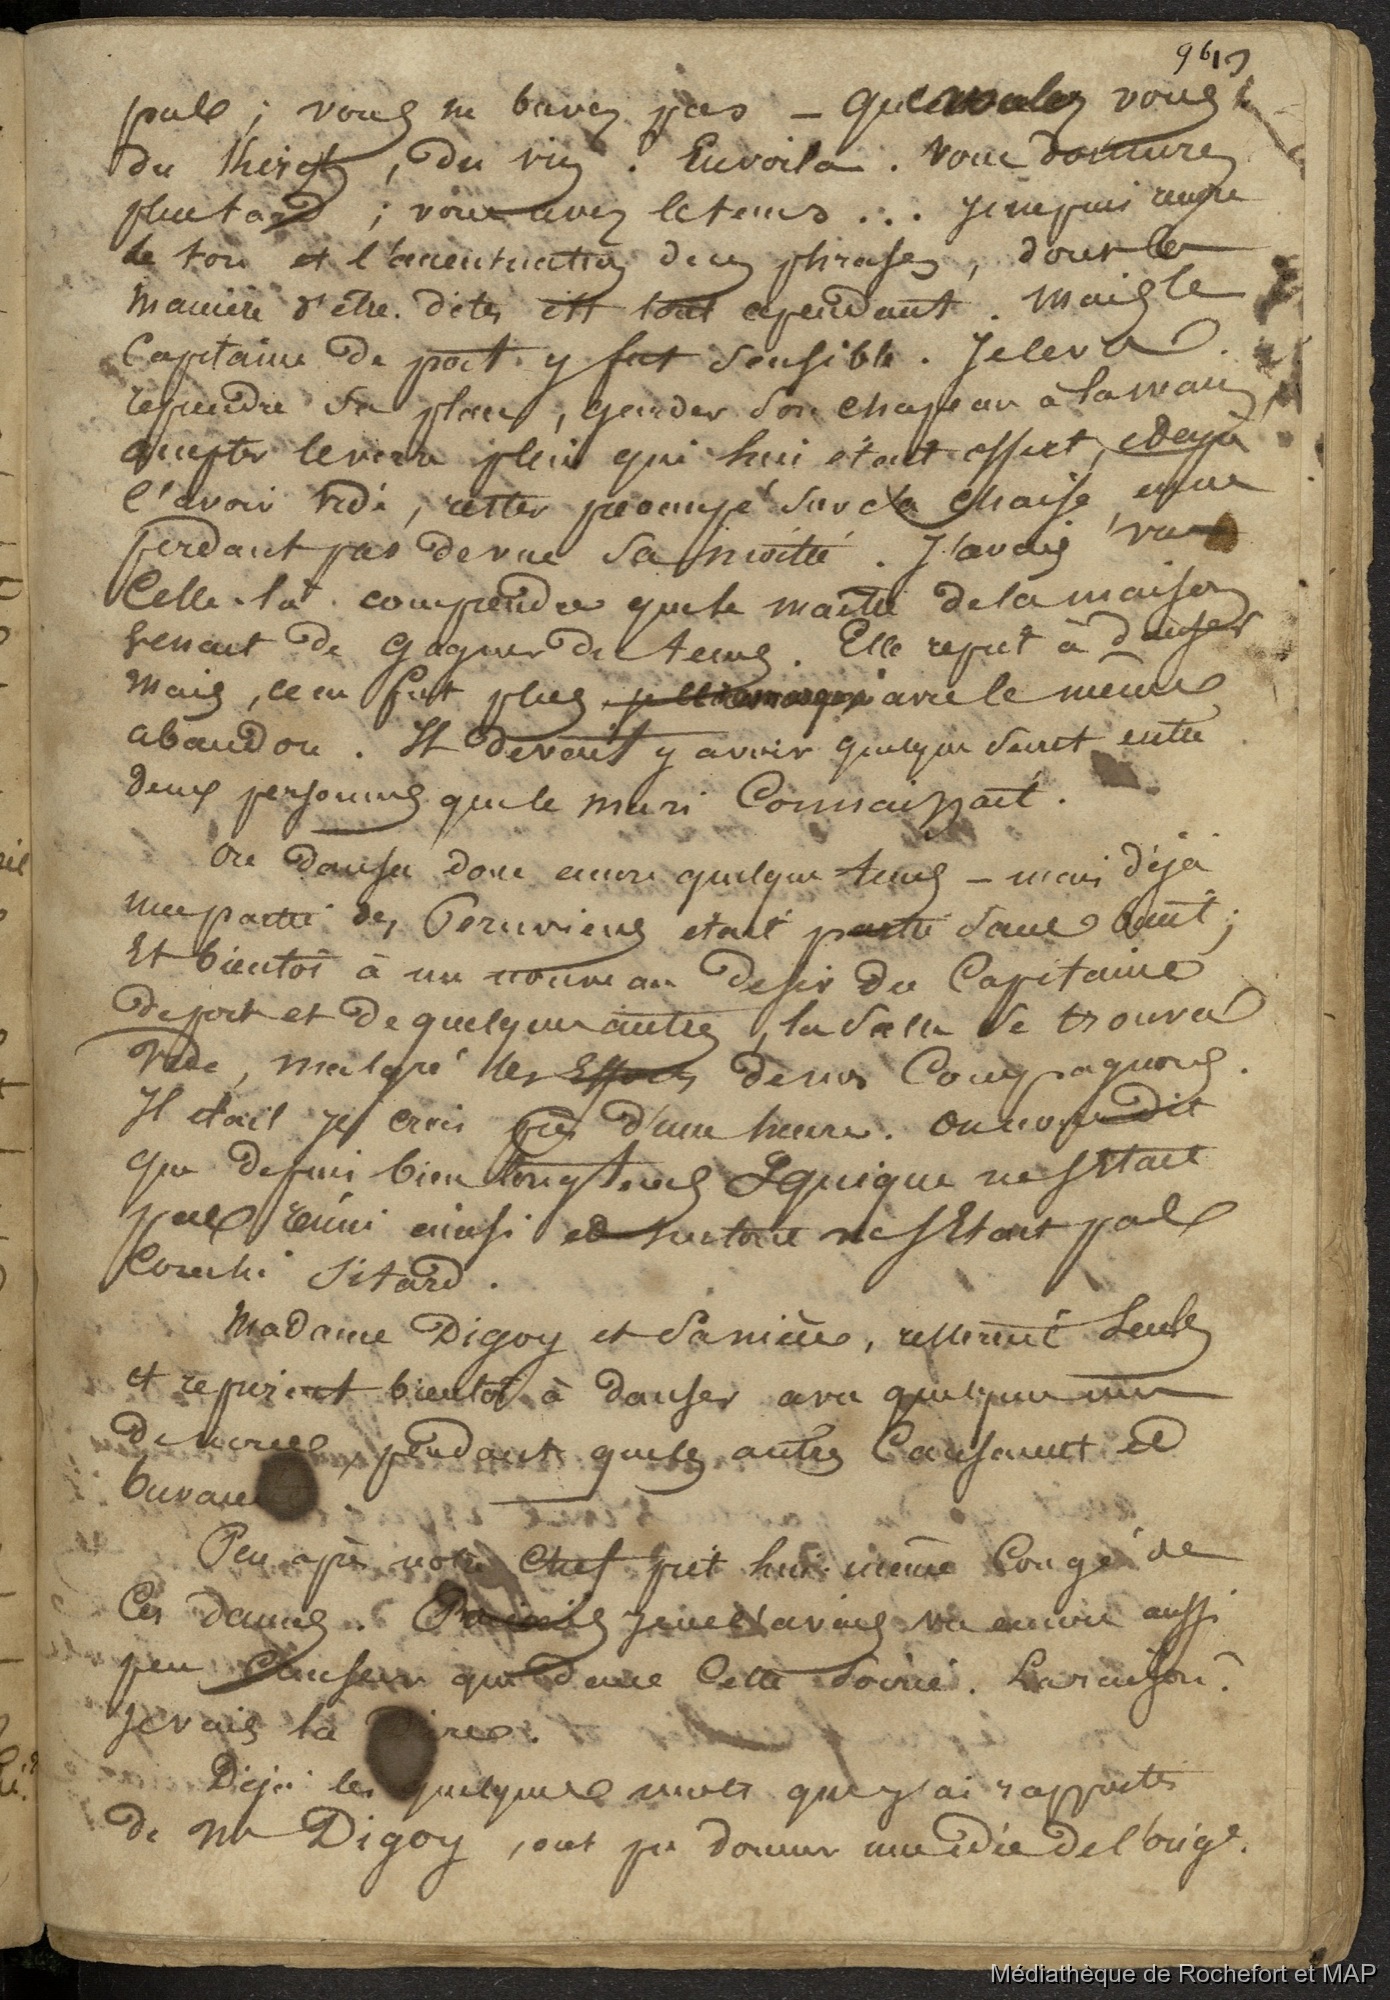 96
pale ; vous ne buvez pas – que voulez vous ?
du , du vin . En voila . Vous danserez
plus tard ; vous avez le tems ... Je ne puis rendre
le ton et l'accentuation de ces phrases, dont la
maniere d'être dites est tout cependant . Mais le
Capitaine de port y fut sensible . Je le vis
reprendre sa place, garder son chapeau à la main
accepter le verre plein qui lui était offert, et après
l'avoir vidé, rester préoccupé sur sa chaise, en ne
perdant pas de vue sa moitié . J'avais vu
Celle-là comprendre que le maitre de la maison
venait de gagner du tems . Elle reprit à danser
mais, ce ne fut plus avec le même
abandon . Il devait y avoir quelque secret entre
deux personnes que le mari Connaissait .
On dansa donc encore quelque tems – mais déjà
une partie des Peruviens était partie sans bruit ;
Et bientôt à un nouveau desir du Capitaine
de port et de quelques autres, la salle se trouva
vide, malgré les Efforts de nos Compagnons .
Il etait je crois près d'une heure . On nous dit
que depuis bien longtems Iquique ne s'Etait
pas réuni ainsi et surtout ne s'Etait pas
Couché si tard .
Madame Digoy et sa nièce, resterent seules
et reprirent bientôt à danser avec quelques uns
de nous, pendant que les autres Causaient et
buvaient .
Peu après notre Chef prit lui-même Congé de
Ces dames . Jamais je ne l'avais vu encore aussi
peu Causeur que dans Cette soirée . La raison ?
Je vais la dire .
Déja les quelques mots que j'ai rapportés
de Mr Digoy, ont pu donner une idée de l'orig.
Médiathèque de Rochefort et MAP